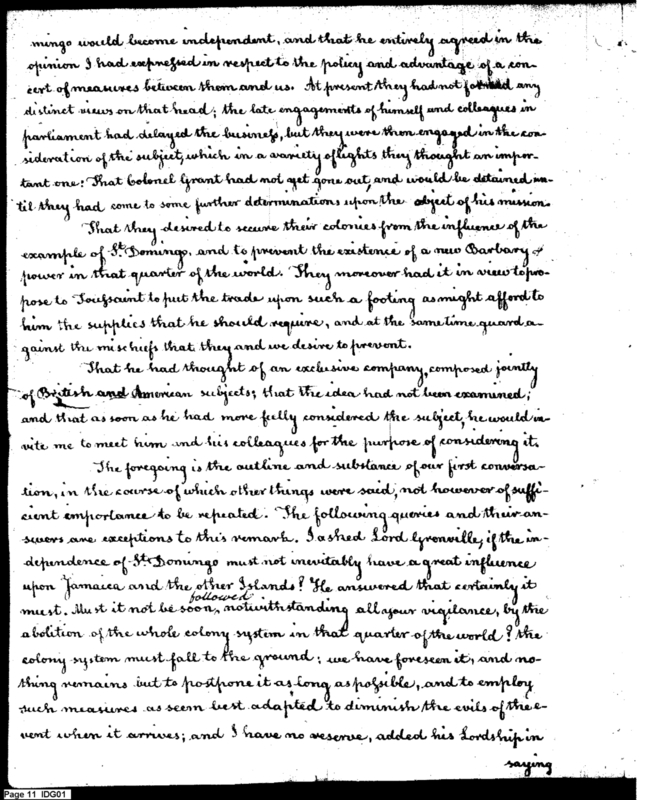 mingo would become independent, and that he entirely agreed in the
opinion I had expressed in respect to the policy and advantage of a con-
cert of measures between them and us. At present they had not formed any
distinct views on that head; the late engagements of himself and colleagues in
parliament had delayed the business, but they were then engaged in the con-
sideration of the subject, which in a variety of lights they thought an impor-
tant one: That Colonel Grant had not yet gone out, and would be detained un-
til they had come to some further determinations upon the object of his mission.
That they desired to secure their colonies from the influence of the
example of St. Domingo, and to prevent the existence of a new Barbary
power in that quarter of the world. They moreover had it in view to pro-
pose to Toussaint to put the trade upon such a footing as might afford to
him the supplies that he should require, and at the same time guard a-
gainst the mischiefs that they and we desire to prevent.
That he had thought of an exclusive company, composed jointly
of British and American subjects; that the idea had not been examined;
and that as soon as he had more fully considered the subject, he would in-
vite me to meet him and his colleagues for the purpose of considering it.
The foregoing is the outline and substance of our first conversa-
tion, in the course of which other things were said, not however of suffi-
cient importance to be repeated. The following queries and their an-
swers are exceptions to this remark. I asked Lord Grenville, if the in-
dependence of St. Domingo must not inevitably have a great influence
upon Jamaica and the other Islands? He answered that certainly it
followed
must. Must it not be soon, notwithstanding all your vigilance, by the
abolition of the whole colony system in that quarter of the world? the
colony system must fall to the ground: we have foreseen it, and no-
thing remains but to postpone it as long as possible, and to employ
such measures as seem best adapted to diminish the evils of the e-
vent when it arrives; and I have no reserve, added his Lordship in
saying
Page 11 IDG01